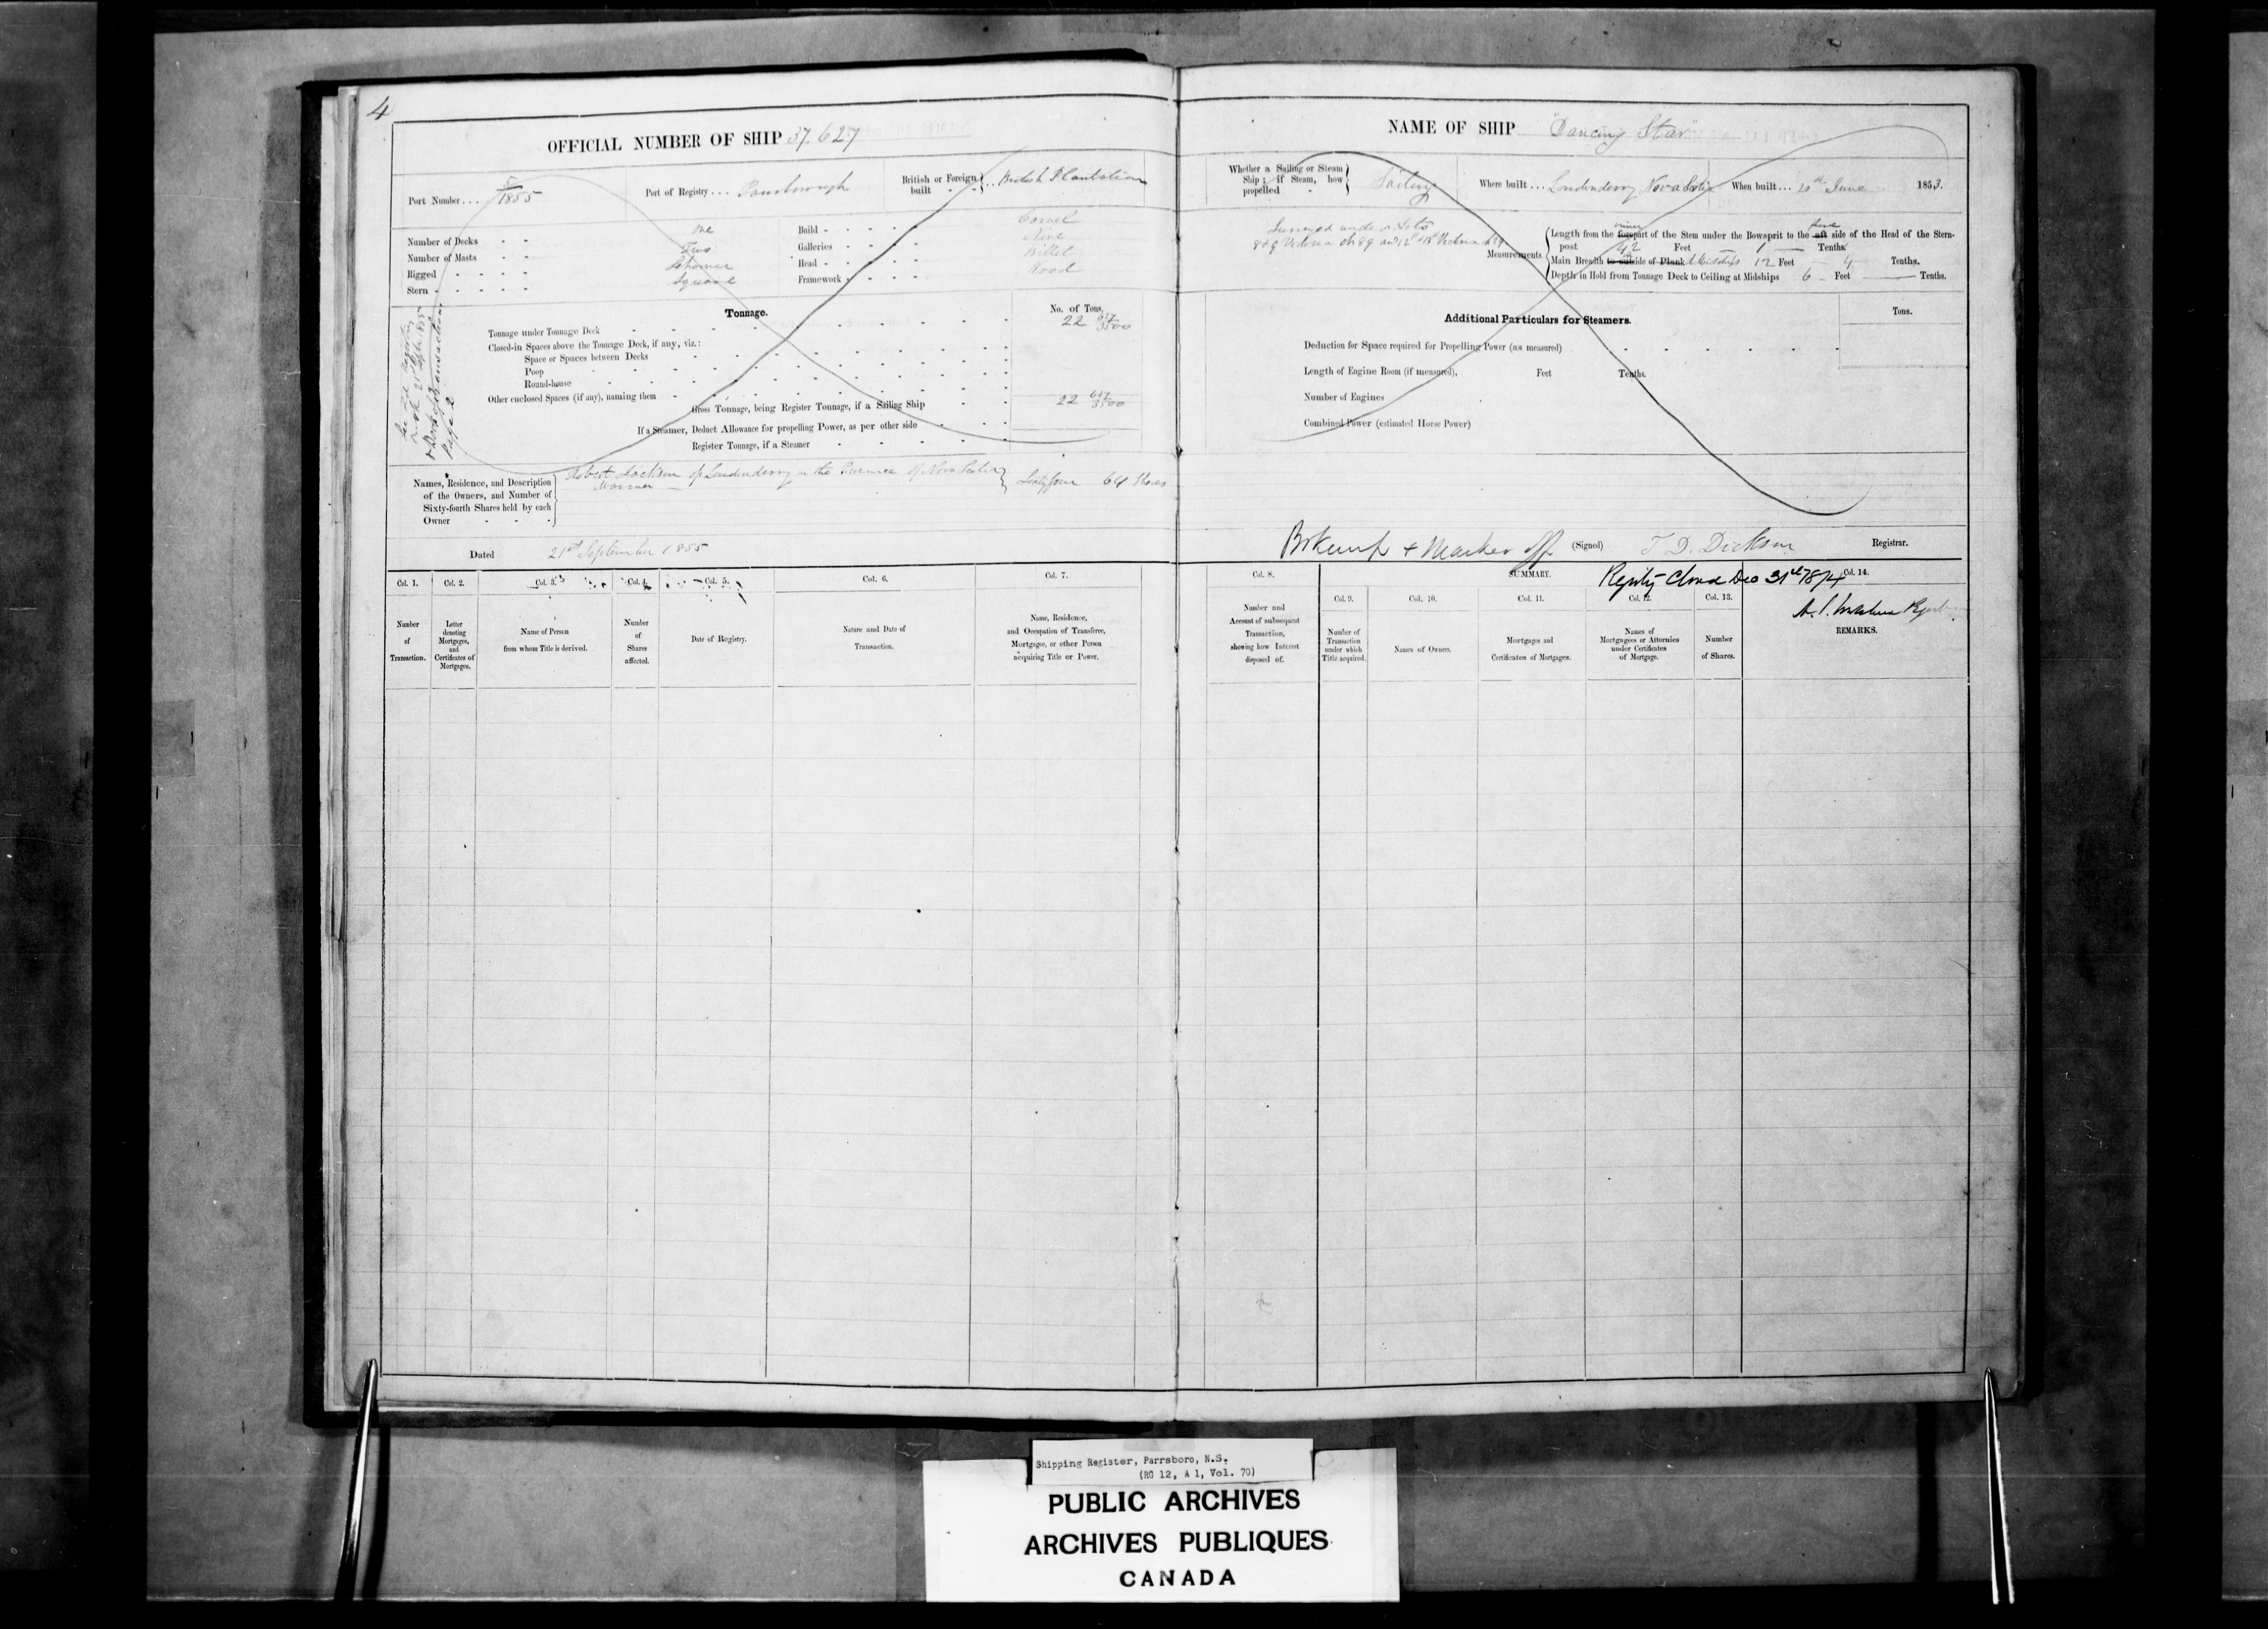 4
OFFICIAL NUMBER OF SHIP 37.627
Port Number . . . 5/1855 Port of Registry . . . Parrsborough British or Foreign built . . . British Plantation
Number of Decks - - one Build - - - - - Carvel
Number of Masts - - Two Galleries - - - -
Rigged - - - - Schooner Head - - - - - Billet
Stern - - - - - Square Framework - - - - Wood
Tonnage. No. of Tons.
Tonnage under Tonnage Deck 22 657/3500
Closed-in Spaces above the Tonnage Deck, if any, viz.:
Space or Spaces between Decks
Poop
Round-house
Other enclosed Spaces (if any), naming them
Gross Tonnage, being Register Tonnage, if a Sailing Ship 22 657/3500
If a Steamer, Deduct Allowance for propelling Power, as per other side
Register Tonnage, if a Steamer
Transaction
Page 2
Names, Residence, and Description of the Owners, and Number of Sixty-fourth Shares held by each Owner - - -
Robert Jackson of Londonderry in the Province of Nova Scotia
Mariner Sixty four 64 Shares
Dated 21st September 1855
Col. 1. Col. 2. Col. 3. Col. 4. Col. 5. Col. 6. Col. 7.
Number of Transaction.
Letter denoting Mortgages, and Certificates of Mortgages.
Name of Person from whom Title is derived.
Number of Shares affected.
Date of Registry.
Nature and Date of Transaction.
Name, Residence, and Occupation of Transferee, Mortgagee, or other Person acquiring Title or Power.
NAME OF SHIP "Dancing Star"
Whether a Sailing or Steam Ship; if Steam, how propelled - Sailing Where built . . . Londonderry Nova Scotia When built . . . 20th June 1853.
Surveyed under Acts
8 & 9 Victoria ch 89 and
Measurements
Length from the inner forepart of the Stem under the Bowsprit to the aft side of the Head of the Stern-
post 42 Feet 1 Tenths
Main Breadth to outside of Plank Midships 12 Feet 4 Tenths.
Depth in Hold from Tonnage Deck to Ceiling at Midships 6 Feet — Tenths.
Additional Particulars for Steamers. Tons.
Deduction for Space required for Propelling Power (as measured)
Length of Engine Room (if measured), Feet Tenths.
Number of Engines
Combined Power (estimated Horse Power)
(Signed) T. D. Dickson Registrar.
Registry Closed Dec 31st 1874
Col. 8. SUMMARY. Col. 14.
Col. 9. Col. 10. Col. 11. Col. 12. Col. 13.
Number and Account of subsequent Transaction, showing how Interest disposed of.
Number of Transaction under which Title acquired.
Names of Owners.
Mortgages and Certificates of Mortgages.
Names of Mortgagees or Attornies under Certificates of Mortgage.
Number of Shares.
REMARKS.
Shipping Register, Parrsboro, N.S.
(RG 12, A 1, Vol. 70)
PUBLIC ARCHIVES
ARCHIVES PUBLIQUES
CANADA